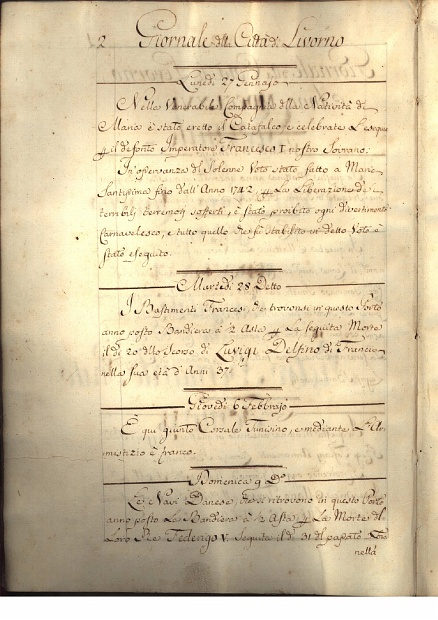 2 Giornale della Città di Livorno
Lunedì 27 Gennajo
Nella Venerabile Compagnia della Natività di
Maria è stato eretto il Catafalco, e celebrate L'esequie
p il defonto Imperatore Francesco I nostro Sovrano;
In osservanza del Solenne Voto stato fatto a Maria
Santissima fino dall'Anno 1742, p La Liberazione de
terribili teremoti sofferti, è stato proibito ogni divertimento
Carnavalesco, e tutto quello che fu stabilito in detto Voto è
stato eseguito.
Martedì 28 Detto
I Bastimenti Francesi, che trovonsi in questo Porto
anno posto Bandiera a ½ Asta p La seguita Morte
il dì 20 dello Scorso di Luvigi Delfino di Francia
nella sua età d'Anni 37.
Giovedì 6 Febbrajo
È qui giunto Corsale Tunisino, e mediante L'Ar
mistizio è franco.
Domenica 9 Do
Le Navi Danese, che si ritrovono in questo Porto
anno posto La Bandiera a ½ Asta p La Morte del
Loro Re Federigo V. seguita il dì 31 del passato
nella